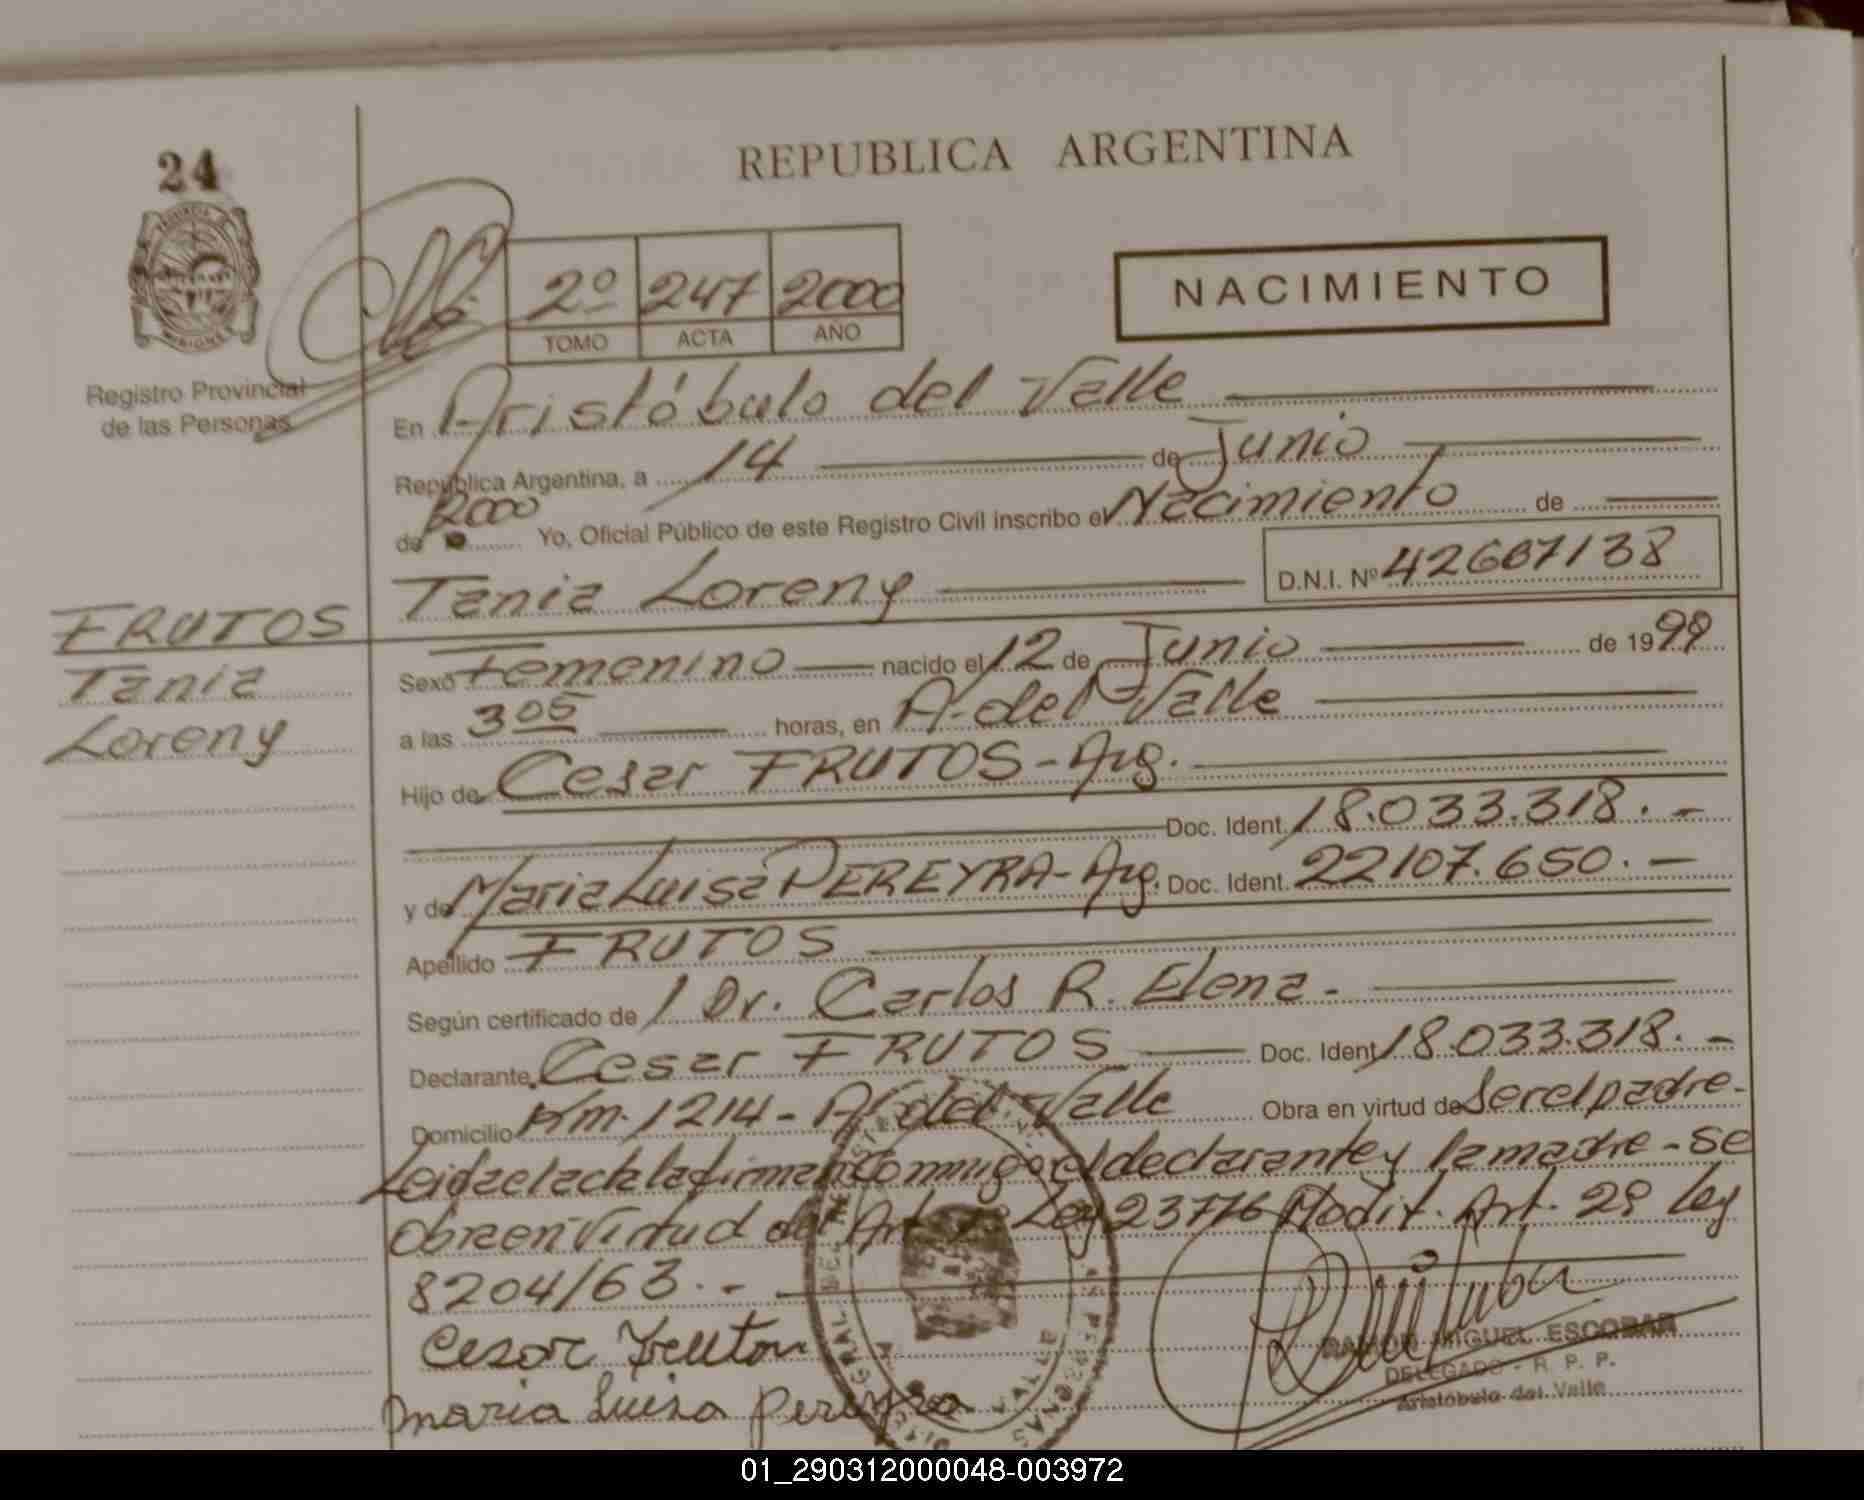 24
REPUBLICA ARGENTINA
2º 247 2000
TOMO ACTA AÑO
NACIMIENTO
Registro Provincial
de las Personas
En Aristóbulo del Valle
República Argentina, a 14 de Junio
de 2000 Yo, Oficial Público de este Registro Civil inscribo el Nacimiento de
Tania Loreny D.N.I. Nº 42607138
FRUTOS
Tania
Loreny
Sexo Femenino nacido el 12 de Junio de 1999
a las 3 05 horas, en A. del Valle
Hijo de Cesar FRUTOS - Arg.
Doc. Ident. 18.033.318.-
y de Maria Luisa PEREYRA - Arg. Doc. Ident. 22107.650.-
Apellido FRUTOS
Según certificado de 1 Dr. Carlos R. Elena -
Declarante Cesar FRUTOS Doc. Ident 18.033.318.-
Domicilio Km. 1214 - A. del Valle Obra en virtud de ser el padre -
Leida el acta la firman conmigo el declarante y la madre - se
obra en virtud del Art. Ley 23776 Modif. Art. 2º Ley
8204/63.-
Cesar Frutos
maria Luisa pereyra
RAMON MIGUEL ESCOBAR
DELEGADO - R. P. P.
Aristóbulo del Valle
01_290312000048-003972